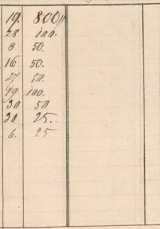 19. 800"
28 100.
8 50.
16 50.
27 50.
49 100.
30 50
30. 25.
6. 25